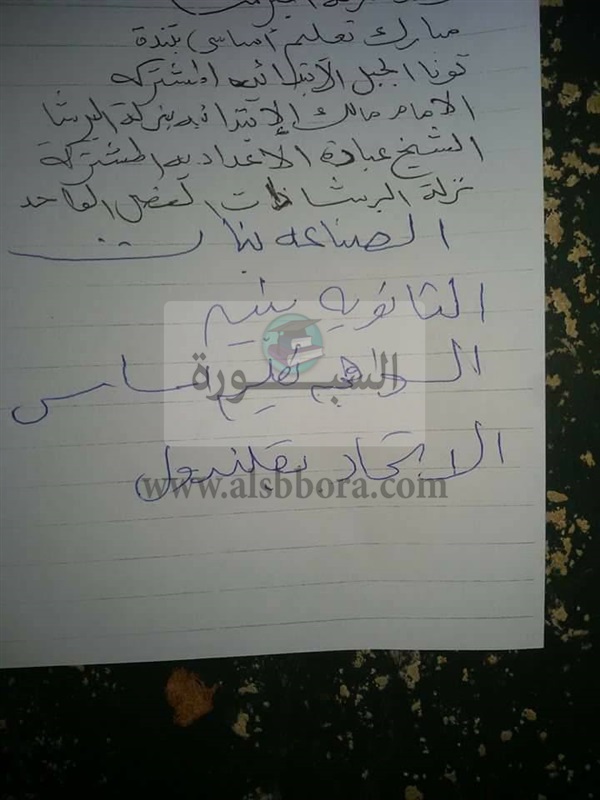 مبارك تعليم أساسى بتندة
تونا الجبل الابتدائيه المشتركه
الامام مالك الإبتدائيه بنزلة البرشا
الشيخ عبادة الاعداديه المشتركة
نزلة البرشا ذات الفصل الواحد
الصناعه بنات
الثانويه بنيه
تعليم ساس
الاتحاد بقلندول
السبورة
www.alsbbora.com